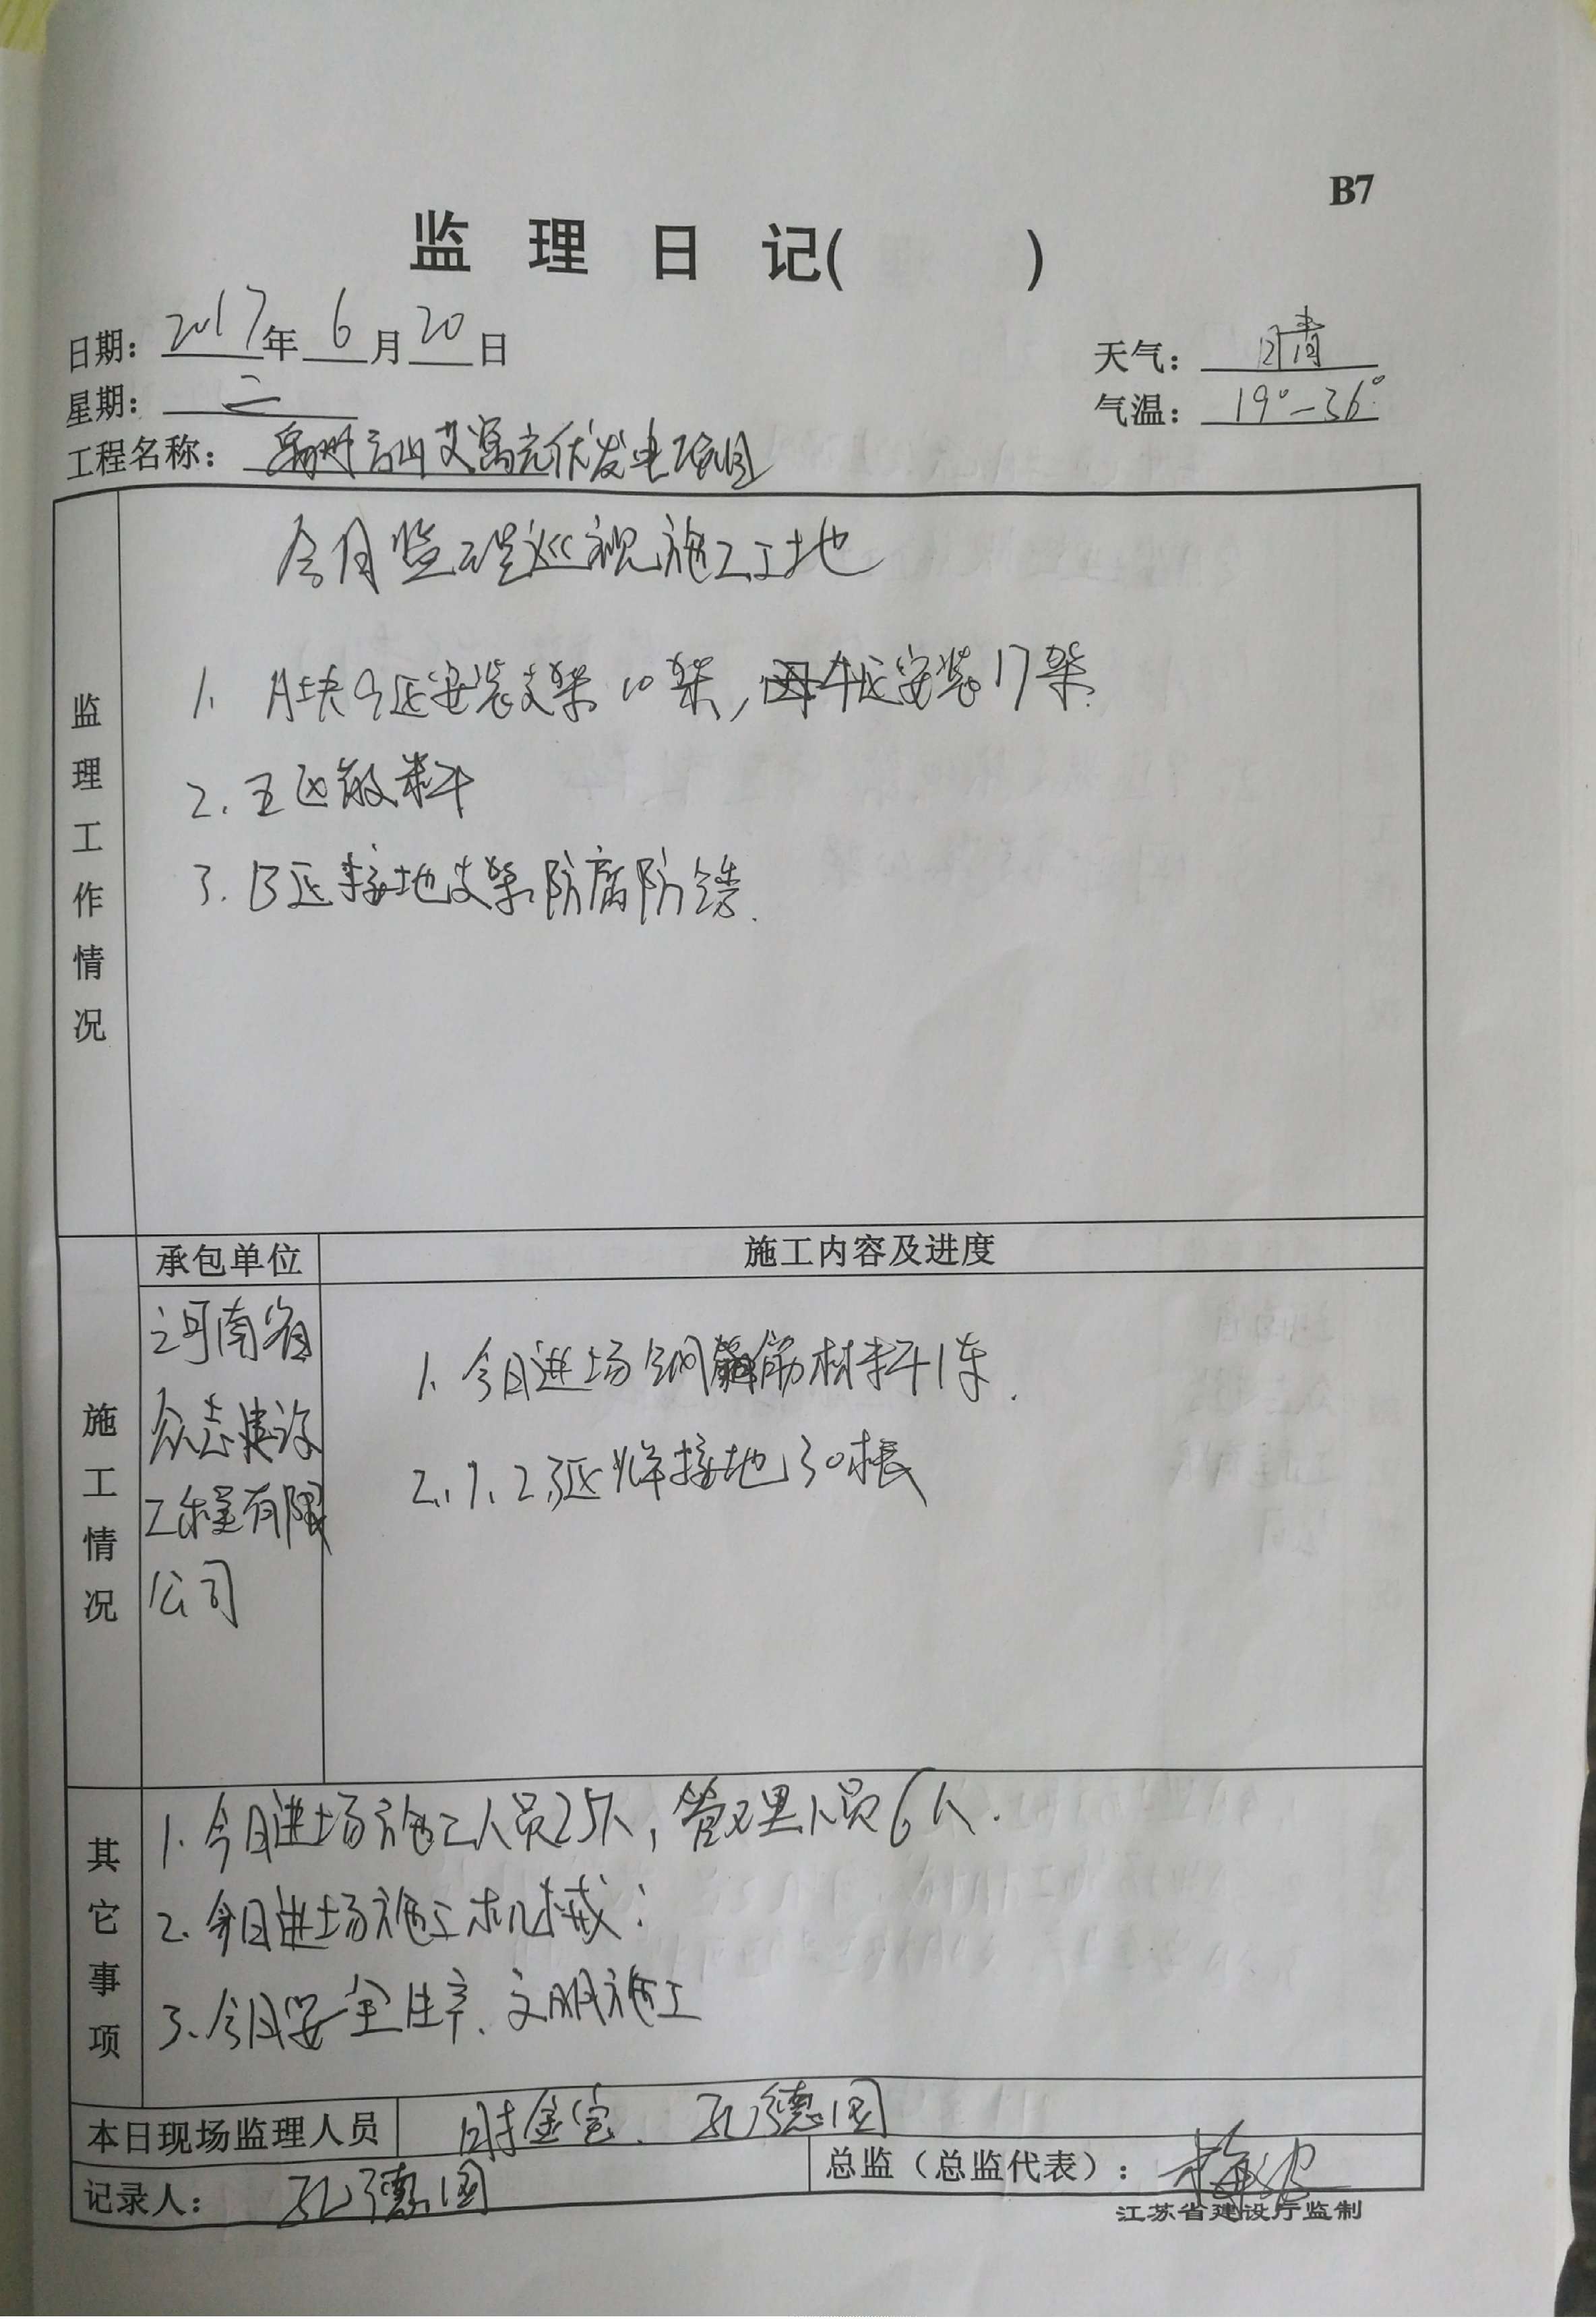 B7
监理日记( )
日期：2017年6月20日
天气：晴
星期：二
气温：19°-36°
工程名称：禹州方山艾鬲光伏发电项目
监理工作情况
今日监理巡视施工工地
1、A块9区安装支架10架，4区安装17架.
2. 五区散料
3. B区接地支架防腐防锈.
承包单位
施工内容及进度
施工情况
河南省
众志建设
工程有限
公司
1、今日进场钢筋材料1车.
2、1、2、3区焊接地30根
其它事项
1、今日进场施工人员25人，管理人员6人.
2、今日进场施工机械：
3、今日安全生产、文明施工
本日现场监理人员 时金宝、孔德国
记录人：孔德国
总监（总监代表）：
江苏省建设厅监制